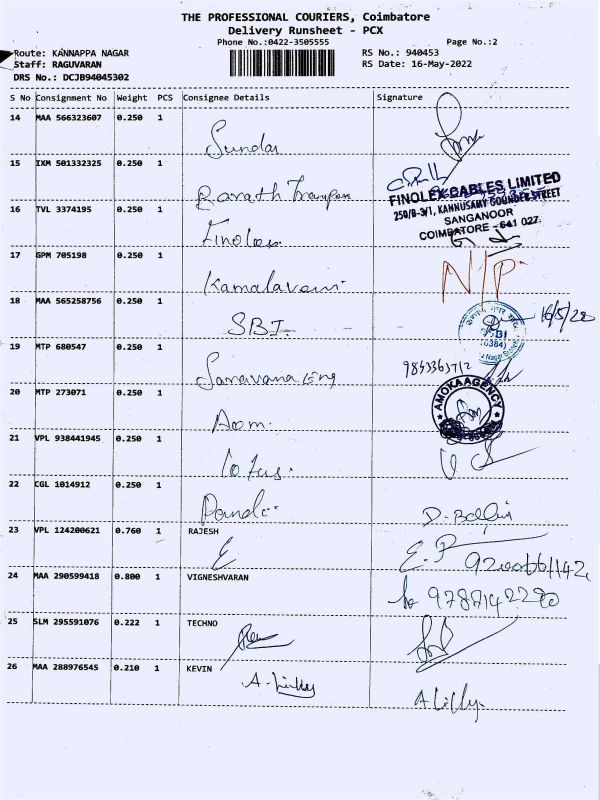 THE PROFESSIONAL COURIERS, Coimbatore
Delivery Runsheet - PCX
Phone No.:0422-3505555 Page No.:2
Route: KANNAPPA NAGAR RS No.: 940453
Staff: RAGUVARAN RS Date: 16-May-2022
DRS No.: DCJB94045302
S No Consignment No Weight PCS Consignee Details Signature
14 MAA 566323607 0.250 1
Sundar
15 IXM 501332325 0.250 1
Barath
FINOLEX CABLES LIMITED
250/B-3/1, KANNUSAMY GOUNDER STREET
SANGANOOR
COIMBATORE - 641 027.
16 TVL 3374195 0.250 1
Finolex
17 GPM 705198 0.250 1
Kamalaveni N/P
18 MAA 565258756 0.250 1
SBI 16/5/22
SBI
19 MTP 680547 0.250 1
Saravana Eng
20 MTP 273071 0.250 1
AMOKA AGENCY
Aom
21 VPL 938441945 0.250 1
Lotus
22 CGL 1014912 0.250 1
23 VPL 124200621 0.760 1 RAJESH
E
24 MAA 290599418 0.800 1 VIGNESHVARAN
25 SLM 295591076 0.222 1 TECHNO
26 MAA 288976545 0.210 1 KEVIN
A. Lilly A Lilly